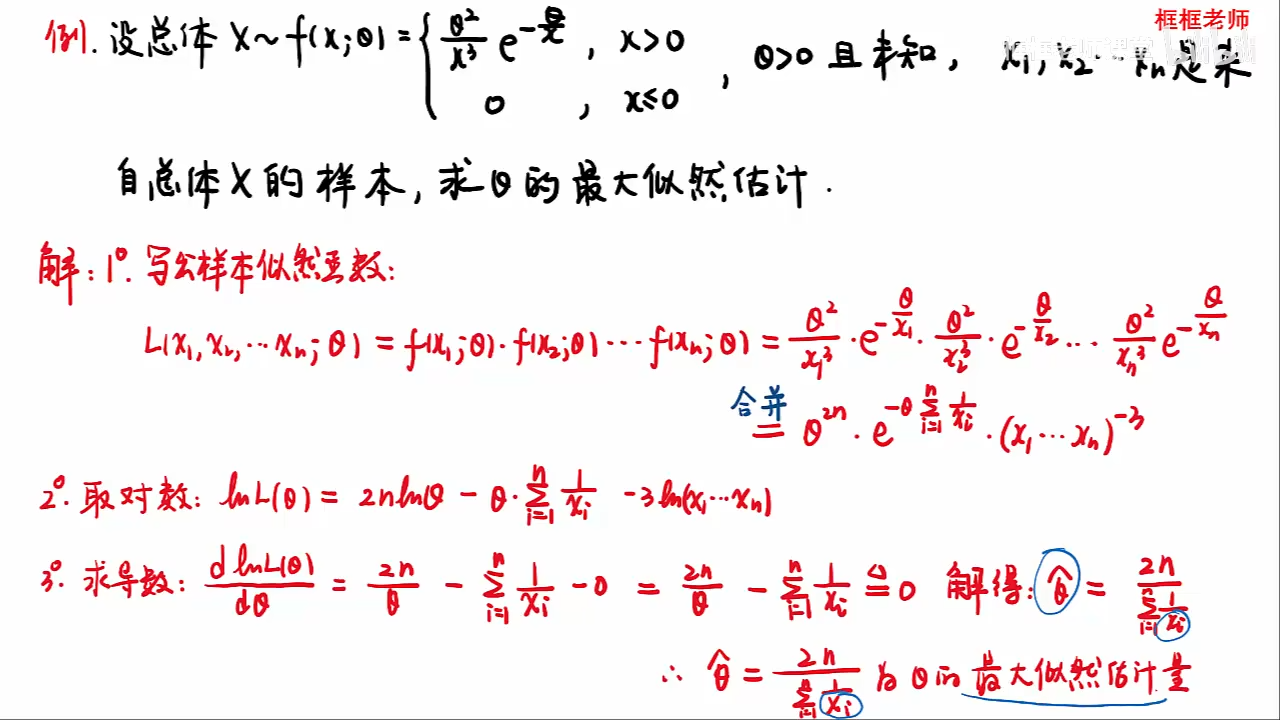 框框老师
例. 设总体 X~f(x;θ) = { θ²/x³ e^(-θ/x), x>0
0, x≤0 , θ>0 且未知, x₁, x₂ ⋯ xₙ是来
自总体X的样本, 求θ的最大似然估计.
解: 1°. 写出样本似然函数:
L(x₁, x₂, ⋯ xₙ; θ) = f(x₁;θ)·f(x₂;θ) ⋯ f(xₙ;θ) = θ²/x₁³ · e^(-θ/x₁) · θ²/x₂³ · e^(-θ/x₂) ⋯ θ²/xₙ³ e^(-θ/xₙ)
合并
= θ^(2n) · e^(-θ Σ_(i=1)^n 1/xᵢ) · (x₁ ⋯ xₙ)^(-3)
2°. 取对数: lnL(θ) = 2nlnθ - θ·Σ_(i=1)^n 1/xᵢ - 3ln(x₁⋯xₙ)
3°. 求导数: d lnL(θ)/dθ = 2n/θ - Σ_(i=1)^n 1/xᵢ - 0 = 2n/θ - Σ_(i=1)^n 1/xᵢ ≜ 0 解得: θ̂ = 2n/(Σ_(i=1)^n 1/xᵢ)
∴ θ̂ = 2n/(Σ_(i=1)^n 1/xᵢ) 为θ的最大似然估计量